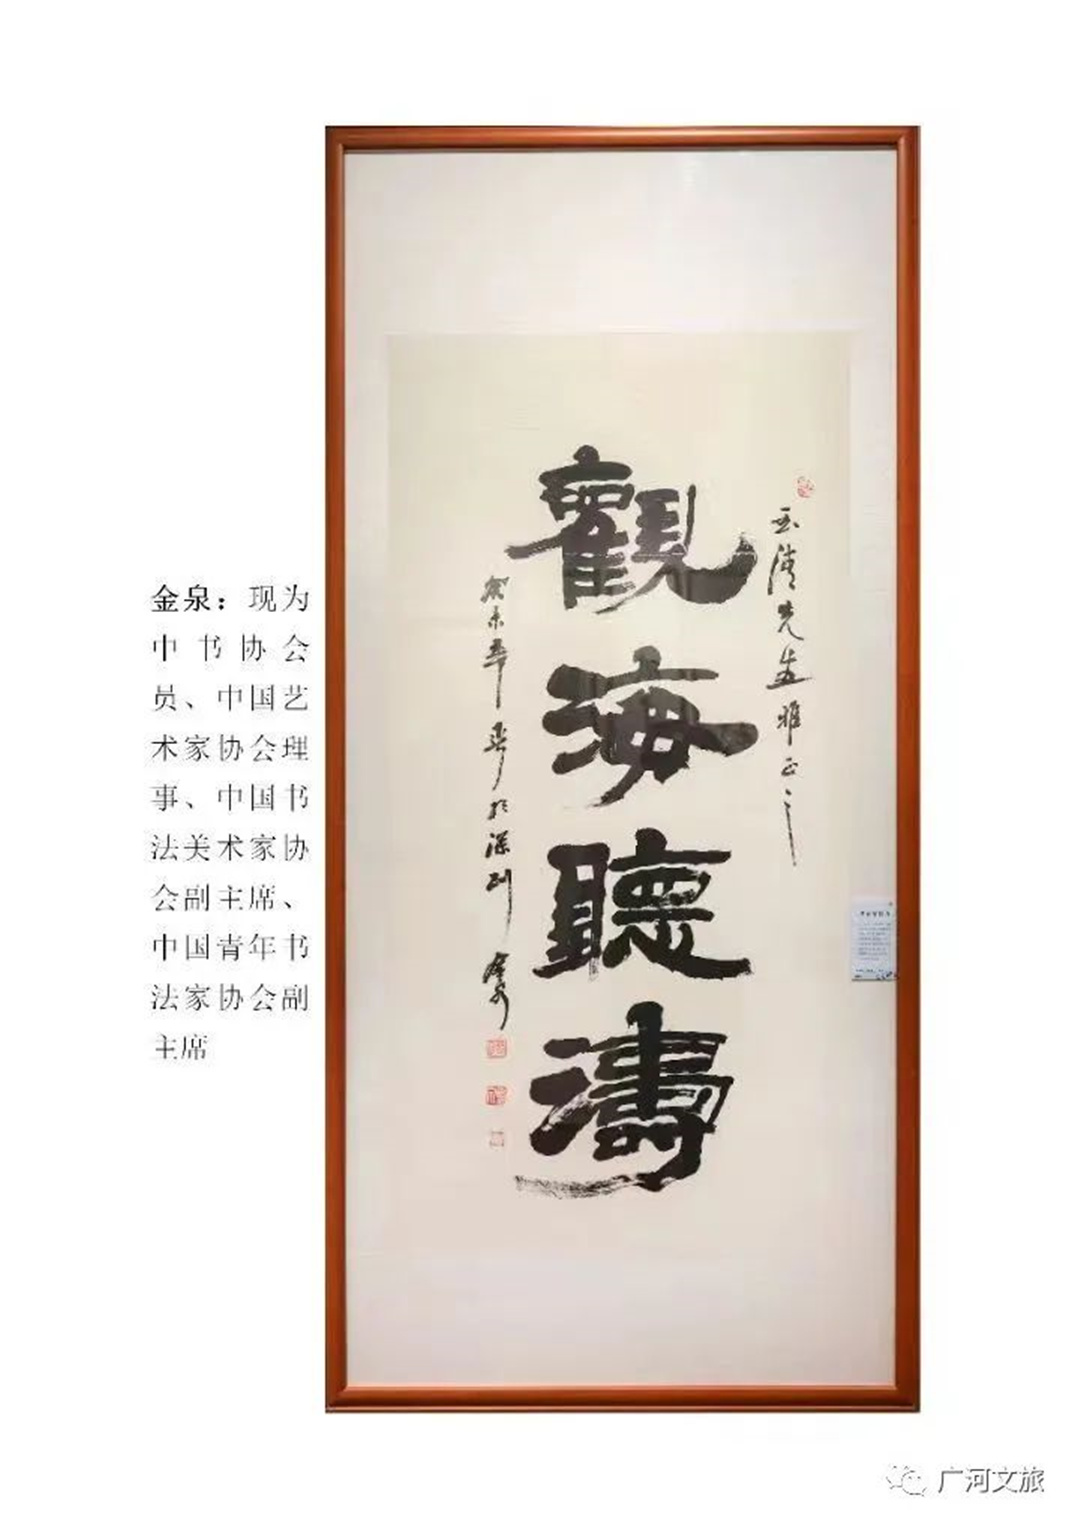 金泉：现为
中书协会
员、中国艺
术家协会理
事、中国书
法美术家协
会副主席、
中国青年书
法家协会副
主席
先生雅正之
觀海聽濤
癸未年夏於深圳 金泉
广河文旅